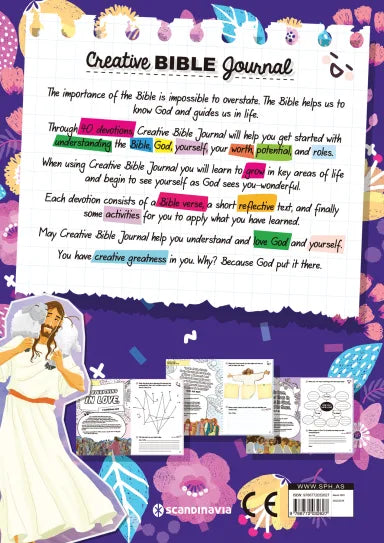 Creative BIBLE Journal
The importance of the Bible is impossible to overstate. The Bible helps us to
know God and guides us in life.
Through 40 devotions, Creative Bible Journal will help you get started with
understanding the Bible, God, yourself, your worth, potential, and roles.
When using Creative Bible Journal you will learn to grow in key areas of life
and begin to see yourself as God sees you-wonderful.
Each devotion consists of a Bible verse, a short reflective text, and finally
some activities for you to apply what you have learned.
May Creative Bible Journal help you understand and love God and yourself.
You have creative greatness in you. Why? Because God put it there.
IN LOVE
WWW.SPH.AS
ISBN
SCANDINAVIA
CE